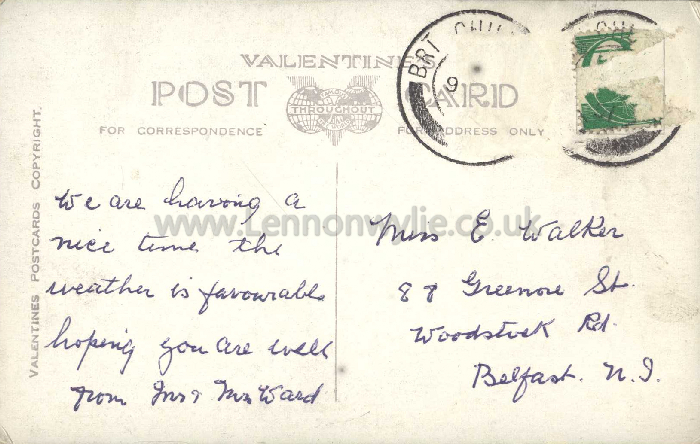 VALENTINE
POST CARD
THROUGHOUT
FOR CORRESPONDENCE
FOR ADDRESS ONLY
VALENTINES POSTCARDS COPYRIGHT.
BRÍ
9
www.Lennonwylie.co.uk
We are having a
nice time the
weather is favourable
hoping you are well
from Mr & Mrs Ward
Miss E. Walker
88 Greenore St.
Woodstock Rd.
Belfast. N.I.